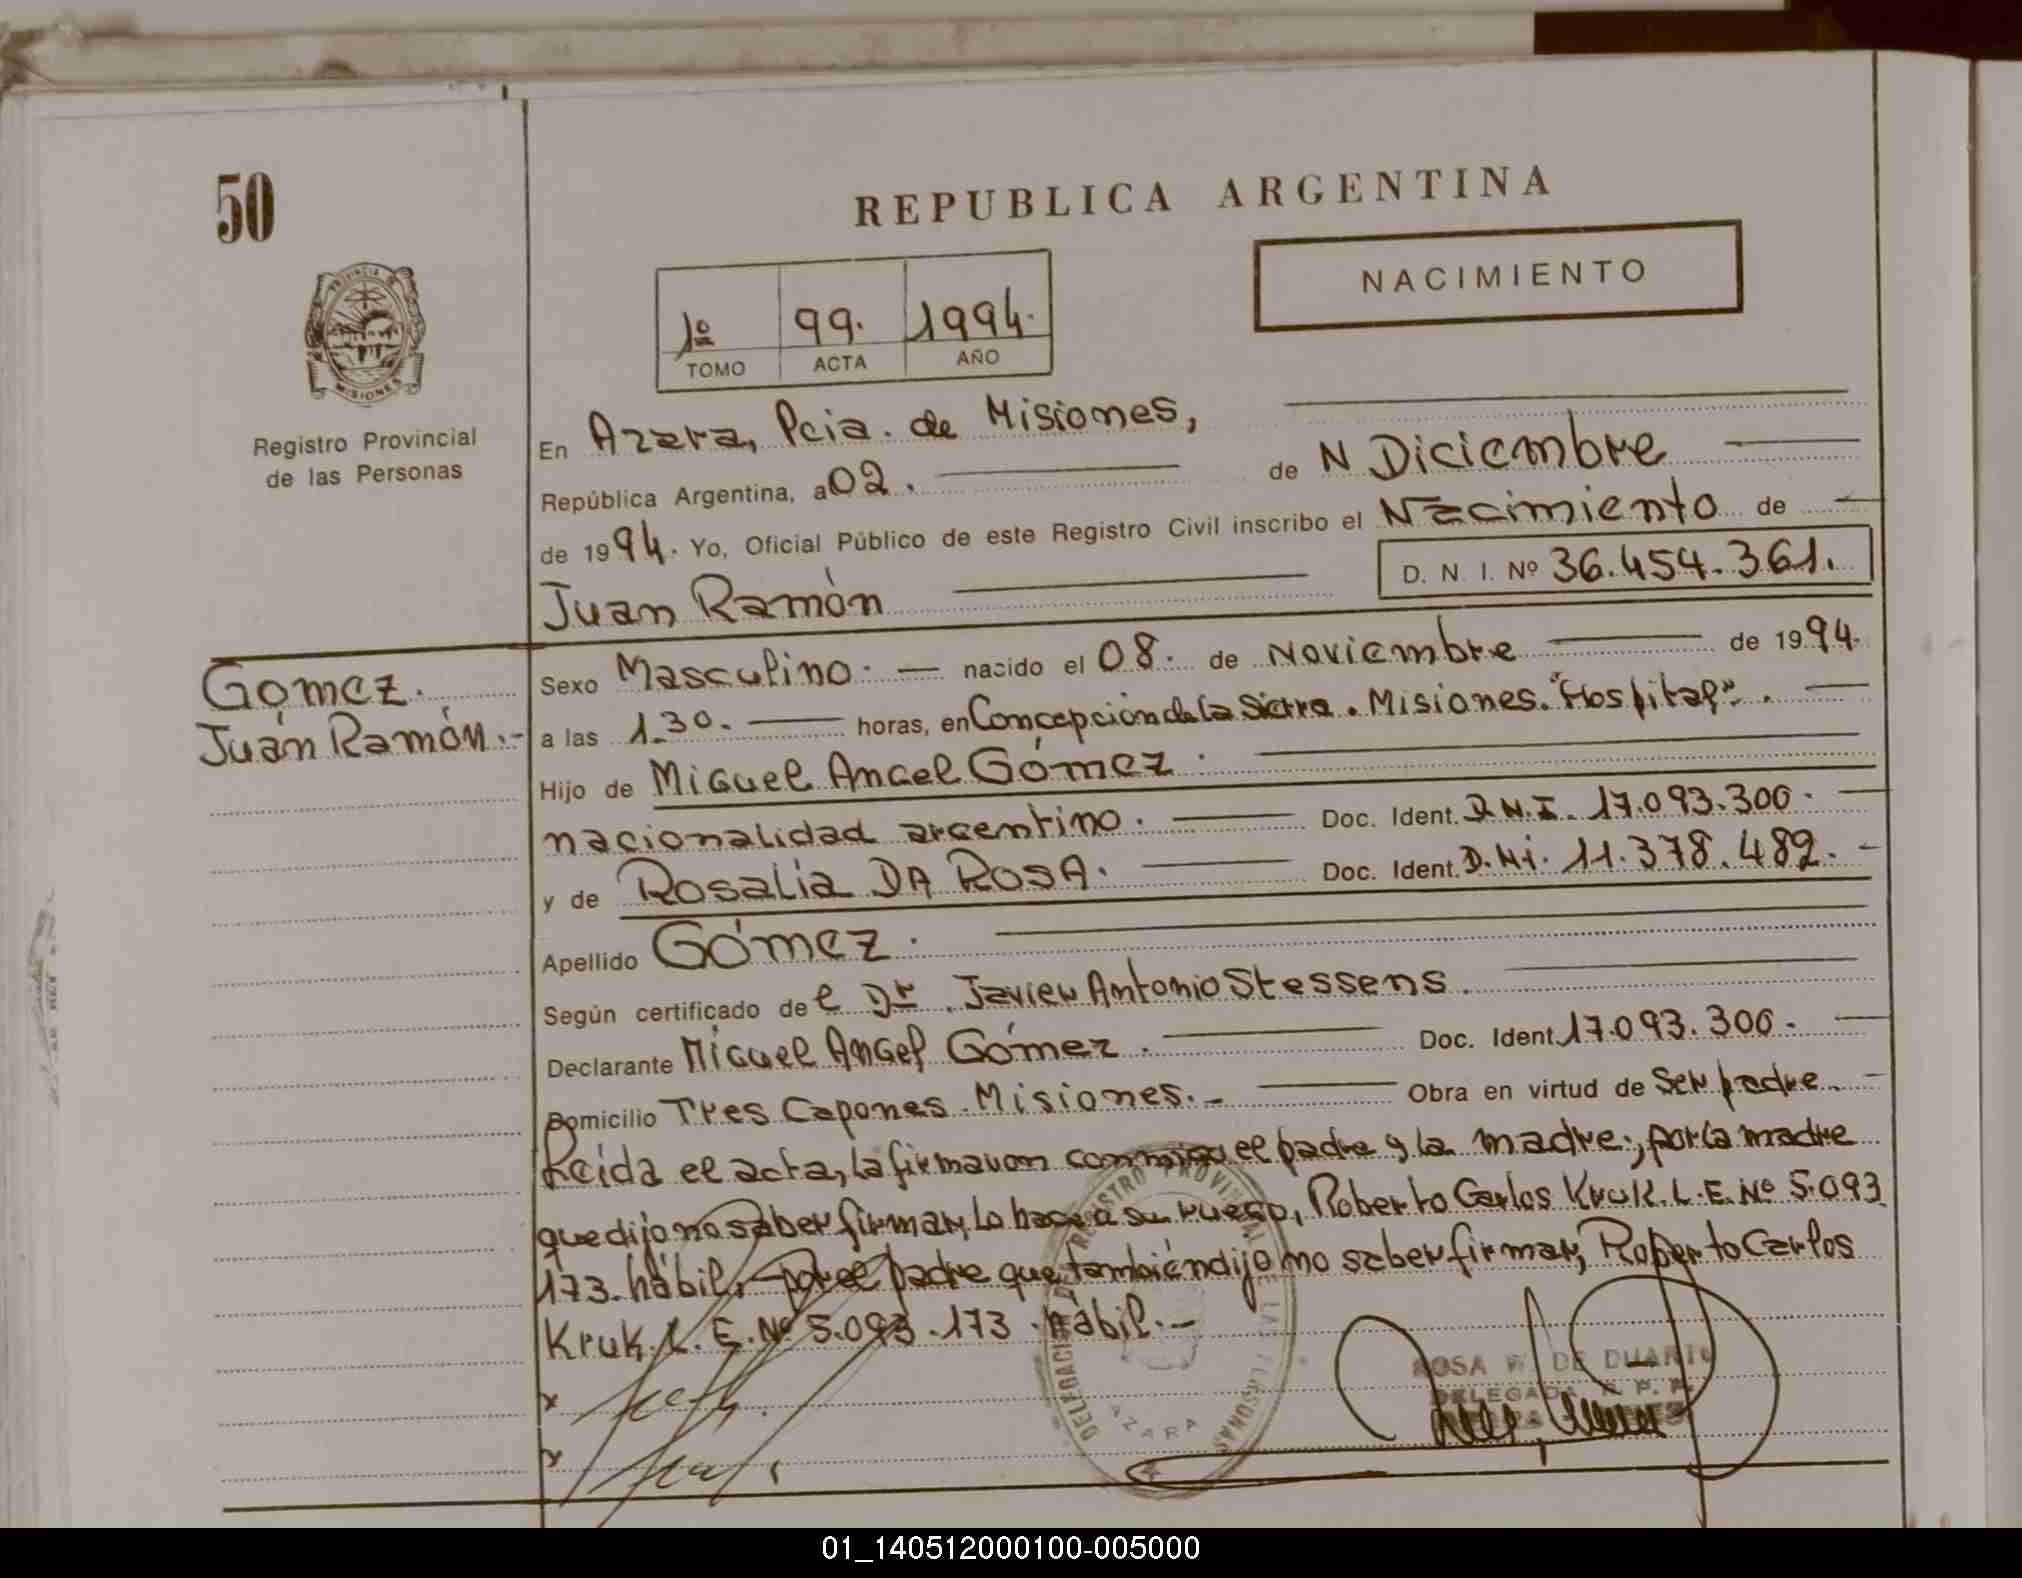 50
REPUBLICA ARGENTINA
NACIMIENTO
PROVINCIA
MISIONES
1º 99. 1994.
TOMO ACTA AÑO
Registro Provincial
de las Personas
En Azara, Pcia. de Misiones,
República Argentina, a 02. de N Diciembre
de 1994. Yo, Oficial Público de este Registro Civil inscribo el Nacimiento de
Juan Ramón D. N. I. Nº 36.454.361.
Gómez.
Juán Ramón.-
Sexo Masculino. — nacido el 08. de Noviembre de 1994.
a las 1.30. horas, en Concepción de la Sierra. Misiones. "Hospital".
Hijo de Miguel Angel Gómez.
nacionalidad argentino. Doc. Ident. D.N.I. 17.093.300.
y de Rosalia DA ROSA. Doc. Ident. D.Ni. 11.378.482.
Apellido Gómez.
Según certificado de l Dr. Javier Antonio Stessens.
Declarante Miguel Angel Gómez. Doc. Ident. 17.093.300.
Domicilio Tres Capones. Misiones.- Obra en virtud de Ser padre.
Leída el acta, la firmaron conmigo el padre y la madre; por la madre
que dijo no saber firmar, lo hace a su ruego, Roberto Carlos Kruk. L.E. Nº 5.093
173. hábil, por el padre que también dijo no saber firmar, Roberto Carlos
Kruk. L.E. Nº 5.093.173. hábil.-
x
x
DELEGACI REGISTRO PROVINCIAL LAS PERSONAS
AZARA
ROSA DE DUARTE
DELEGADA R. P. P.
01_140512000100-005000